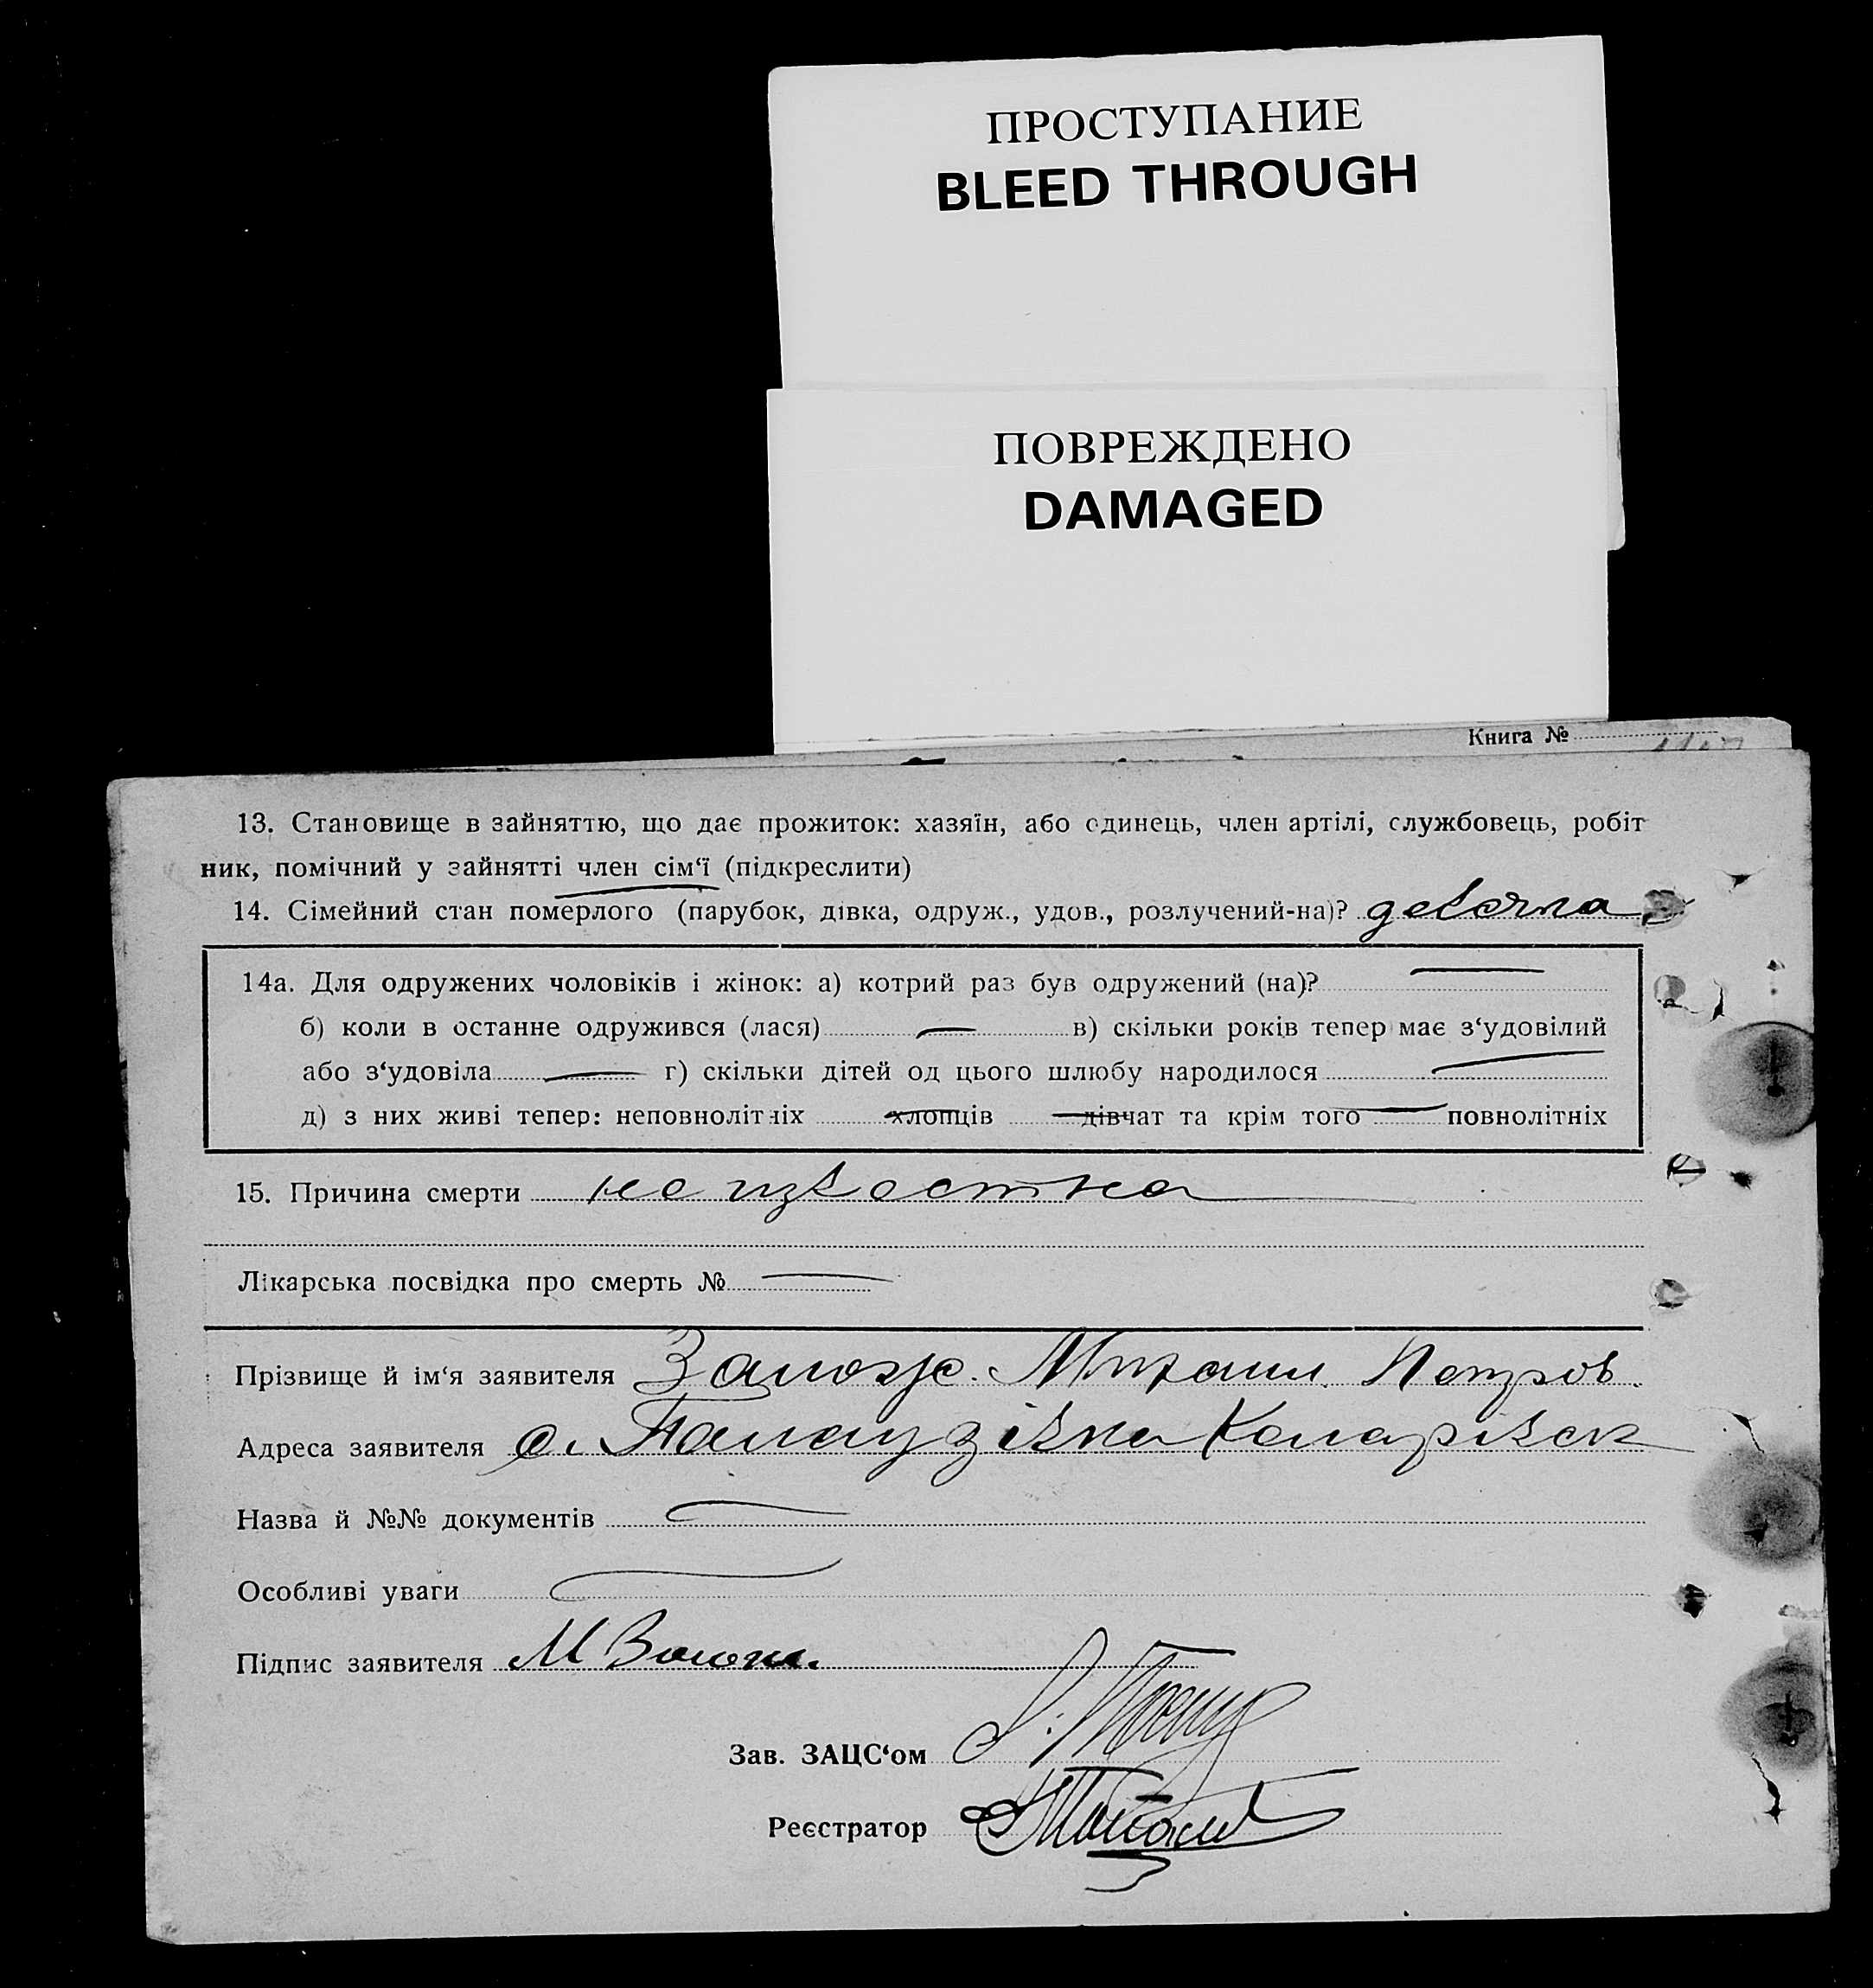 ПРОСТУПАНИЕ
BLEED THROUGH
ПОВРЕЖДЕНО
DAMAGED
Книга №
13. Становище в зайняттю, що дає прожиток: хазяїн, або одинець, член артілі, службовець, робіт
ник, помічний у зайнятті член сім‘ї (підкреслити)
14. Сімейний стан померлого (парубок, дівка, одруж., удов., розлучений-на)?
14а. Для одружених чоловіків і жінок: а) котрий раз був одружений (на)?
б) коли в останне одружився (лася) в) скільки років тепер має з‘удовілий
або з‘удовіла г) скільки дітей од цього шлюбу народилося
д) з них живі тепер: неповнолітніх хлопців дівчат та крім того повнолітніх
15. Причина смерти неизвестна
Лікарська посвідка про смерть №
Прізвище й ім‘я заявителя Михаил Петров.
Адреса заявителя с.
Назва й №№ документів
Особливі уваги
Підпис заявителя М
Зав. ЗАЦС‘ом
Реєстратор